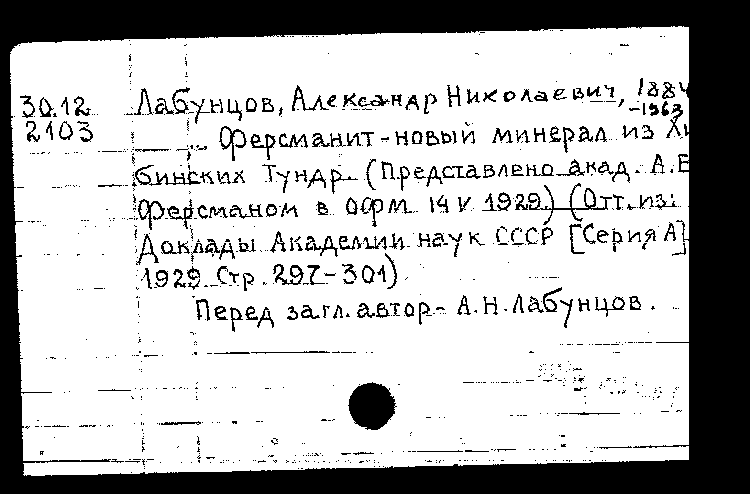 30.12 Лабунцов, Александр Николаевич, 1884
2103 -1963
Ферсманит - новый минерал из Хи
бинских Тундр. (Представлено акад. А.Е
Ферсманом в ОФМ 14 V 1929) (Отт. из:
Доклады Академии наук СССР [Серия А]
1929 Стр. 297-301)
Перед загл. автор - А.Н. Лабунцов.